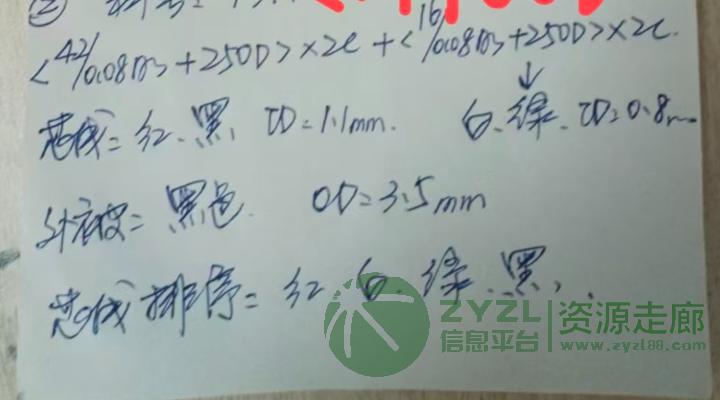 <42/0.08BS+250D>×2C+<16/0.08BS+250D>×2C.
芯线=红、黑 ID=1.1mm. 白、绿、ID=0.8mm
外被=黑色. OD=3.5mm
芯线排序=红、白、绿、黑、
ZYZL 资源走廊
信息平台 www.zyzl88.com